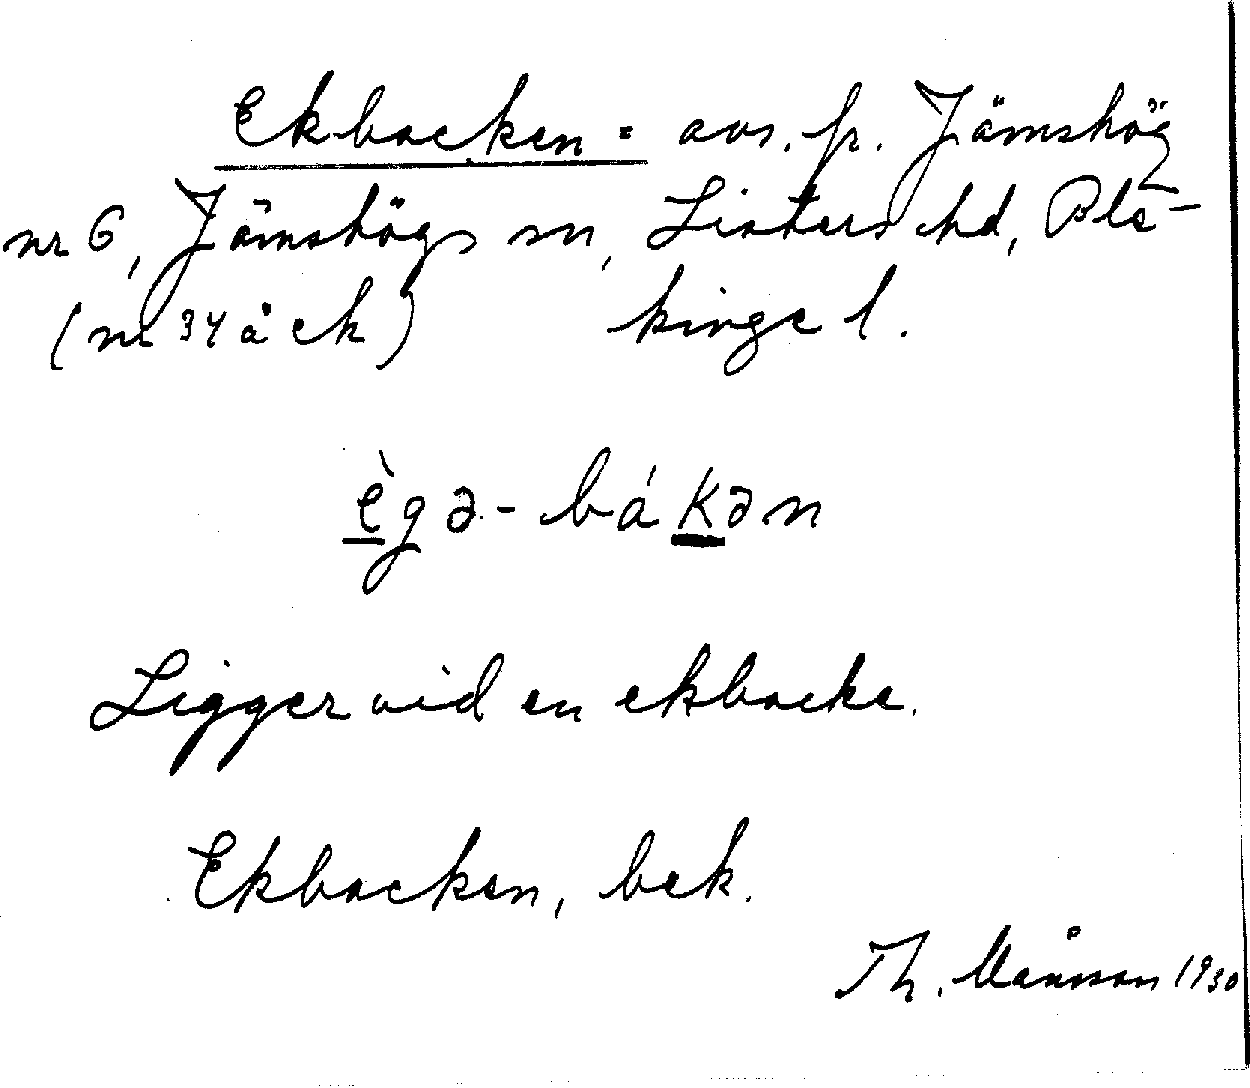 Ekbacken = avs. fr. Jämshög
nr 6, Jämshögs sn, Listers hd, Ble-
(nr 34 å ek) kinge l.
ègə-bákən
Ligger vid en ekbacke.
Ekbacken, bek.
Th. Månsson 1930